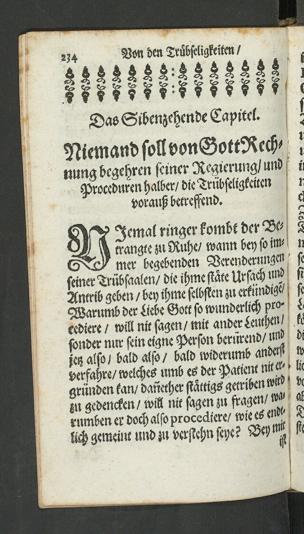 234 Von den Trübseligkeiten /
Das Sibenzehende Capitel.
Niemand soll von Gott Rech-
nung begehren seiner Regierung / und
Proceduren halber / die Trübseligkeiten
vorauß betreffend.
NIemal ringer kombt der Be-
trangte zu Ruhe / wann bey so im-
mer begebenden Verenderungen
seiner Trübsaalen / die ihme stäte Ursach und
Antrib geben / bey ihme selbsten zu erkündigē /
Warumb der Liebe Gott so wunderlich pro-
cediere / will nit sagen / mit ander Leuthen /
sonder nur sein eigne Person berürend / und
jetz also / bald also / bald widerumb anderst
verfahre / welches umb es der Patient nit er-
gründen kan / dañether stättigs getriben wird
zu gedencken / will nit sagen zu fragen / wa-
rumben er doch also procediere / wie es endt-
lich gemeint und zu verstehn seye? Bey mir
ist